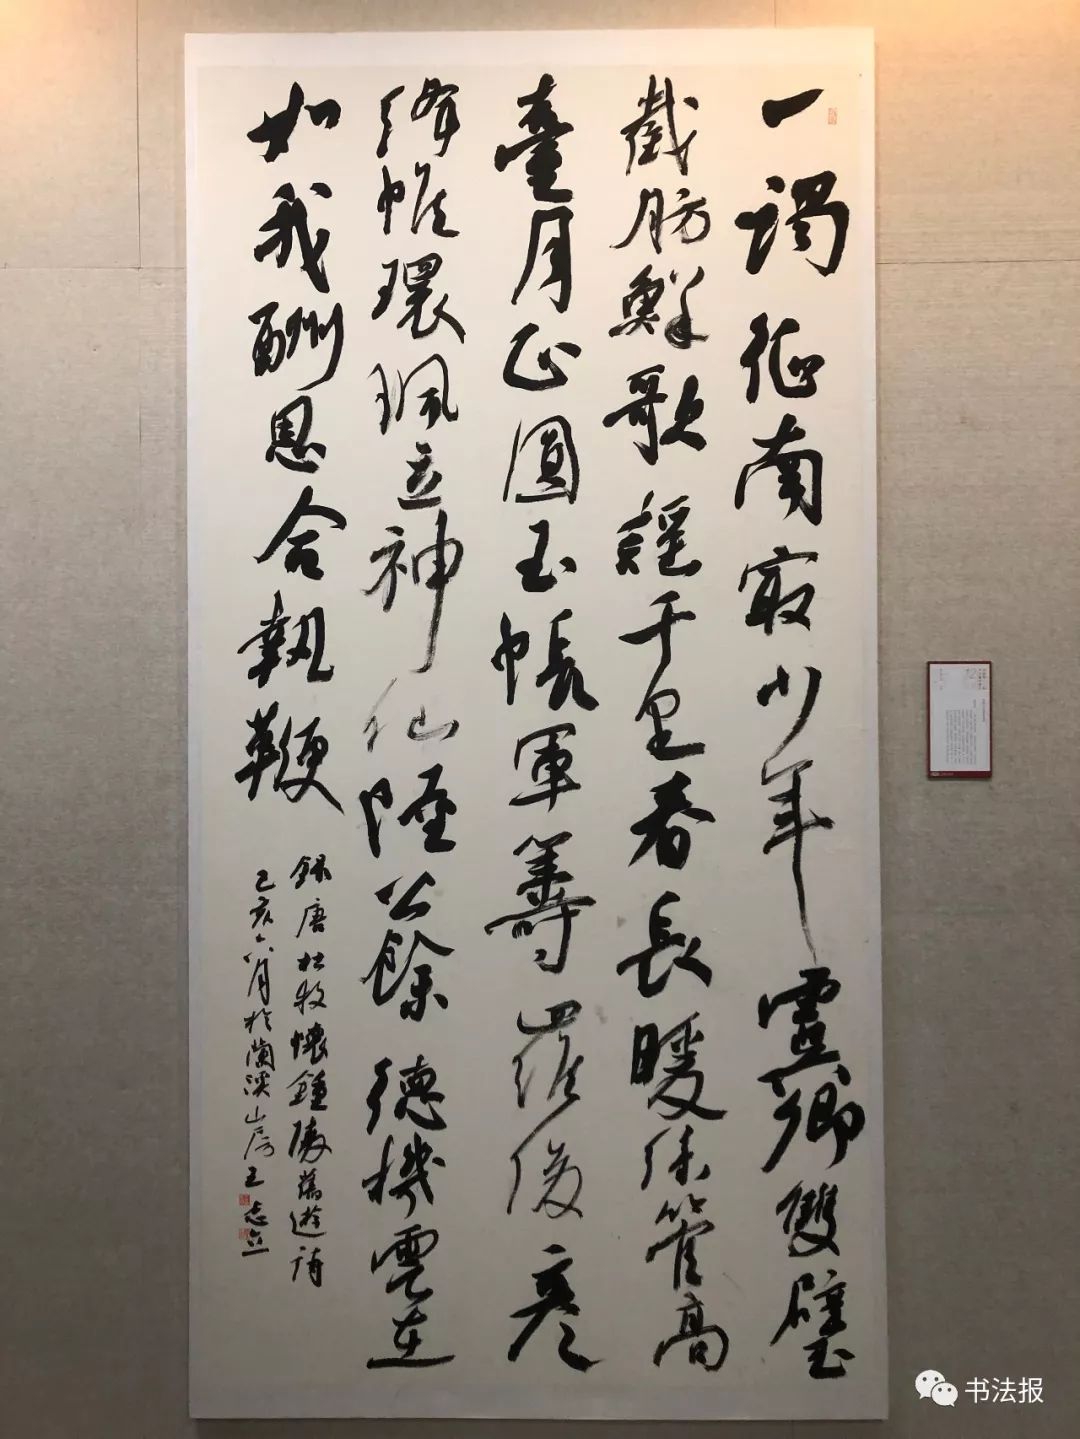 一謁征南冣少年虞卿雙璧
截肪鮮歌謠千里春長暖絲管高
臺月正圓玉帳軍籌羅俊彥
絳帷環珮立神仙陸公餘德機雲在
如我酬恩合執鞭
錄唐杜牧懷鍾陵舊遊詩
己亥六月於蘭溪山房王志
书法报